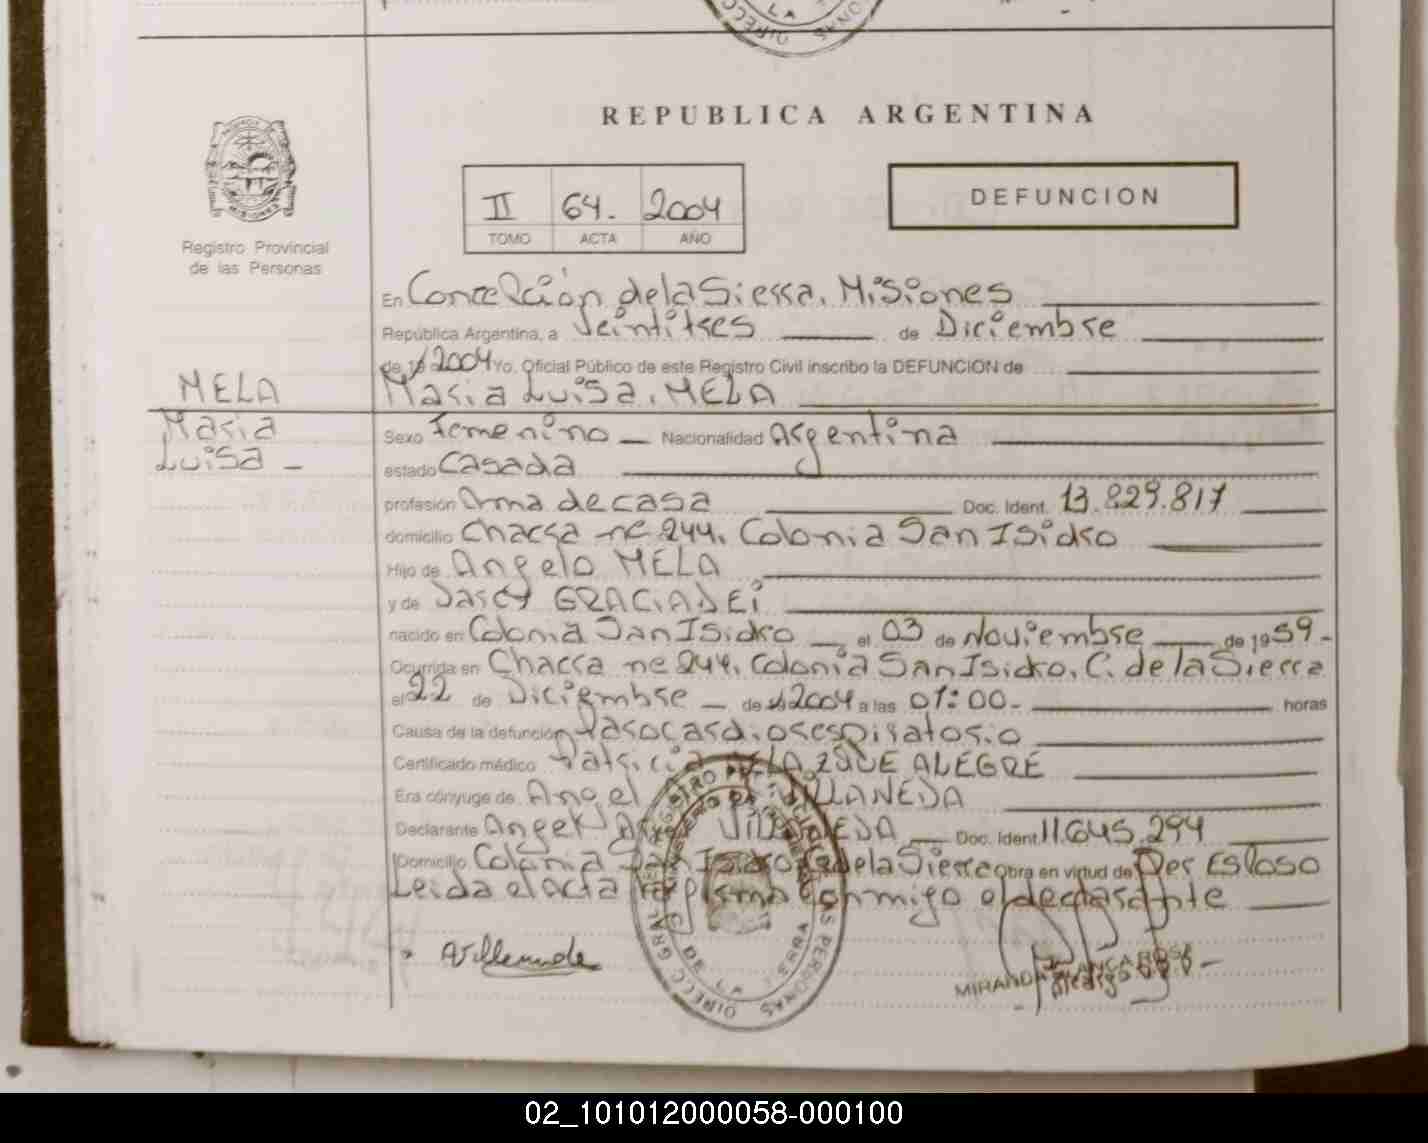 REPUBLICA ARGENTINA
PROVINCIA DE MISIONES
Registro Provincial
de las Personas
II 64- 2004
TOMO ACTA AÑO
DEFUNCION
En Concepción de la Sierra, Misiones
República Argentina, a Veintitres de Diciembre
de 2004 Yo, Oficial Público de este Registro Civil inscribo la DEFUNCION de
MELA
Maria Luisa, MELA
Maria
Luisa -
Sexo Femenino Nacionalidad Argentina
estado Casada
profesión Ama de casa Doc. Ident. 13.829.817
domicilio Chacra nº 244, Colonia San Isidro
Hijo de Angelo MELA
y de GRACIADEi
nacido en Colonia San Isidro el 03 de Noviembre de 1959-
Ocurrida en Chacra nº 244, Colonia San Isidro, C. de la Sierra
el 22 de Diciembre de 2004 a las 01:00- horas
Causa de la defunción Parocardiorespiratorio
Certificado médico Patricia ALEGRE
Era cónyuge de Angel VILLANEDA
Declarante Angel Doc. Ident. 11.645.294
Domicilio Colonia San Isidro C de la Sierra Obra en virtud de Per Esposo
Leida el acta la firma conmigo el declarante
MIRANDA BLANCA ROSA
02_101012000058-000100